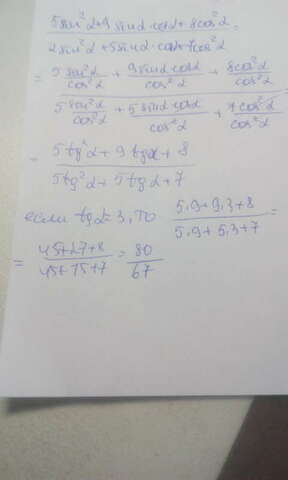 5sin²α+9sinα·cosα+8cos²α
2sin²α+5sinα·cosα+7cos²α =
= 5 sin²α/cos²α + 9sinα cosα/cos²α + 8cos²α/cos²α
5 sin²α/cos²α + 5 sinα cosα/cos²α + 7 cos²α/cos²α
= 5tg²α + 9tgα + 8
5tg²α + 5tgα + 7
если tgα=3, то 5·9+9·3+8 =
5·9+5·3+7
= 45+27+8 = 80
45+15+7 67